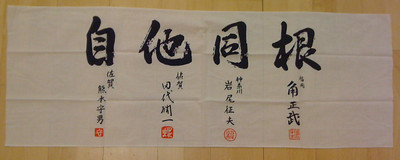 自他同根
佐賀
佐賀
田代潤一
神奈川
岩尾征夫
福岡
角正武